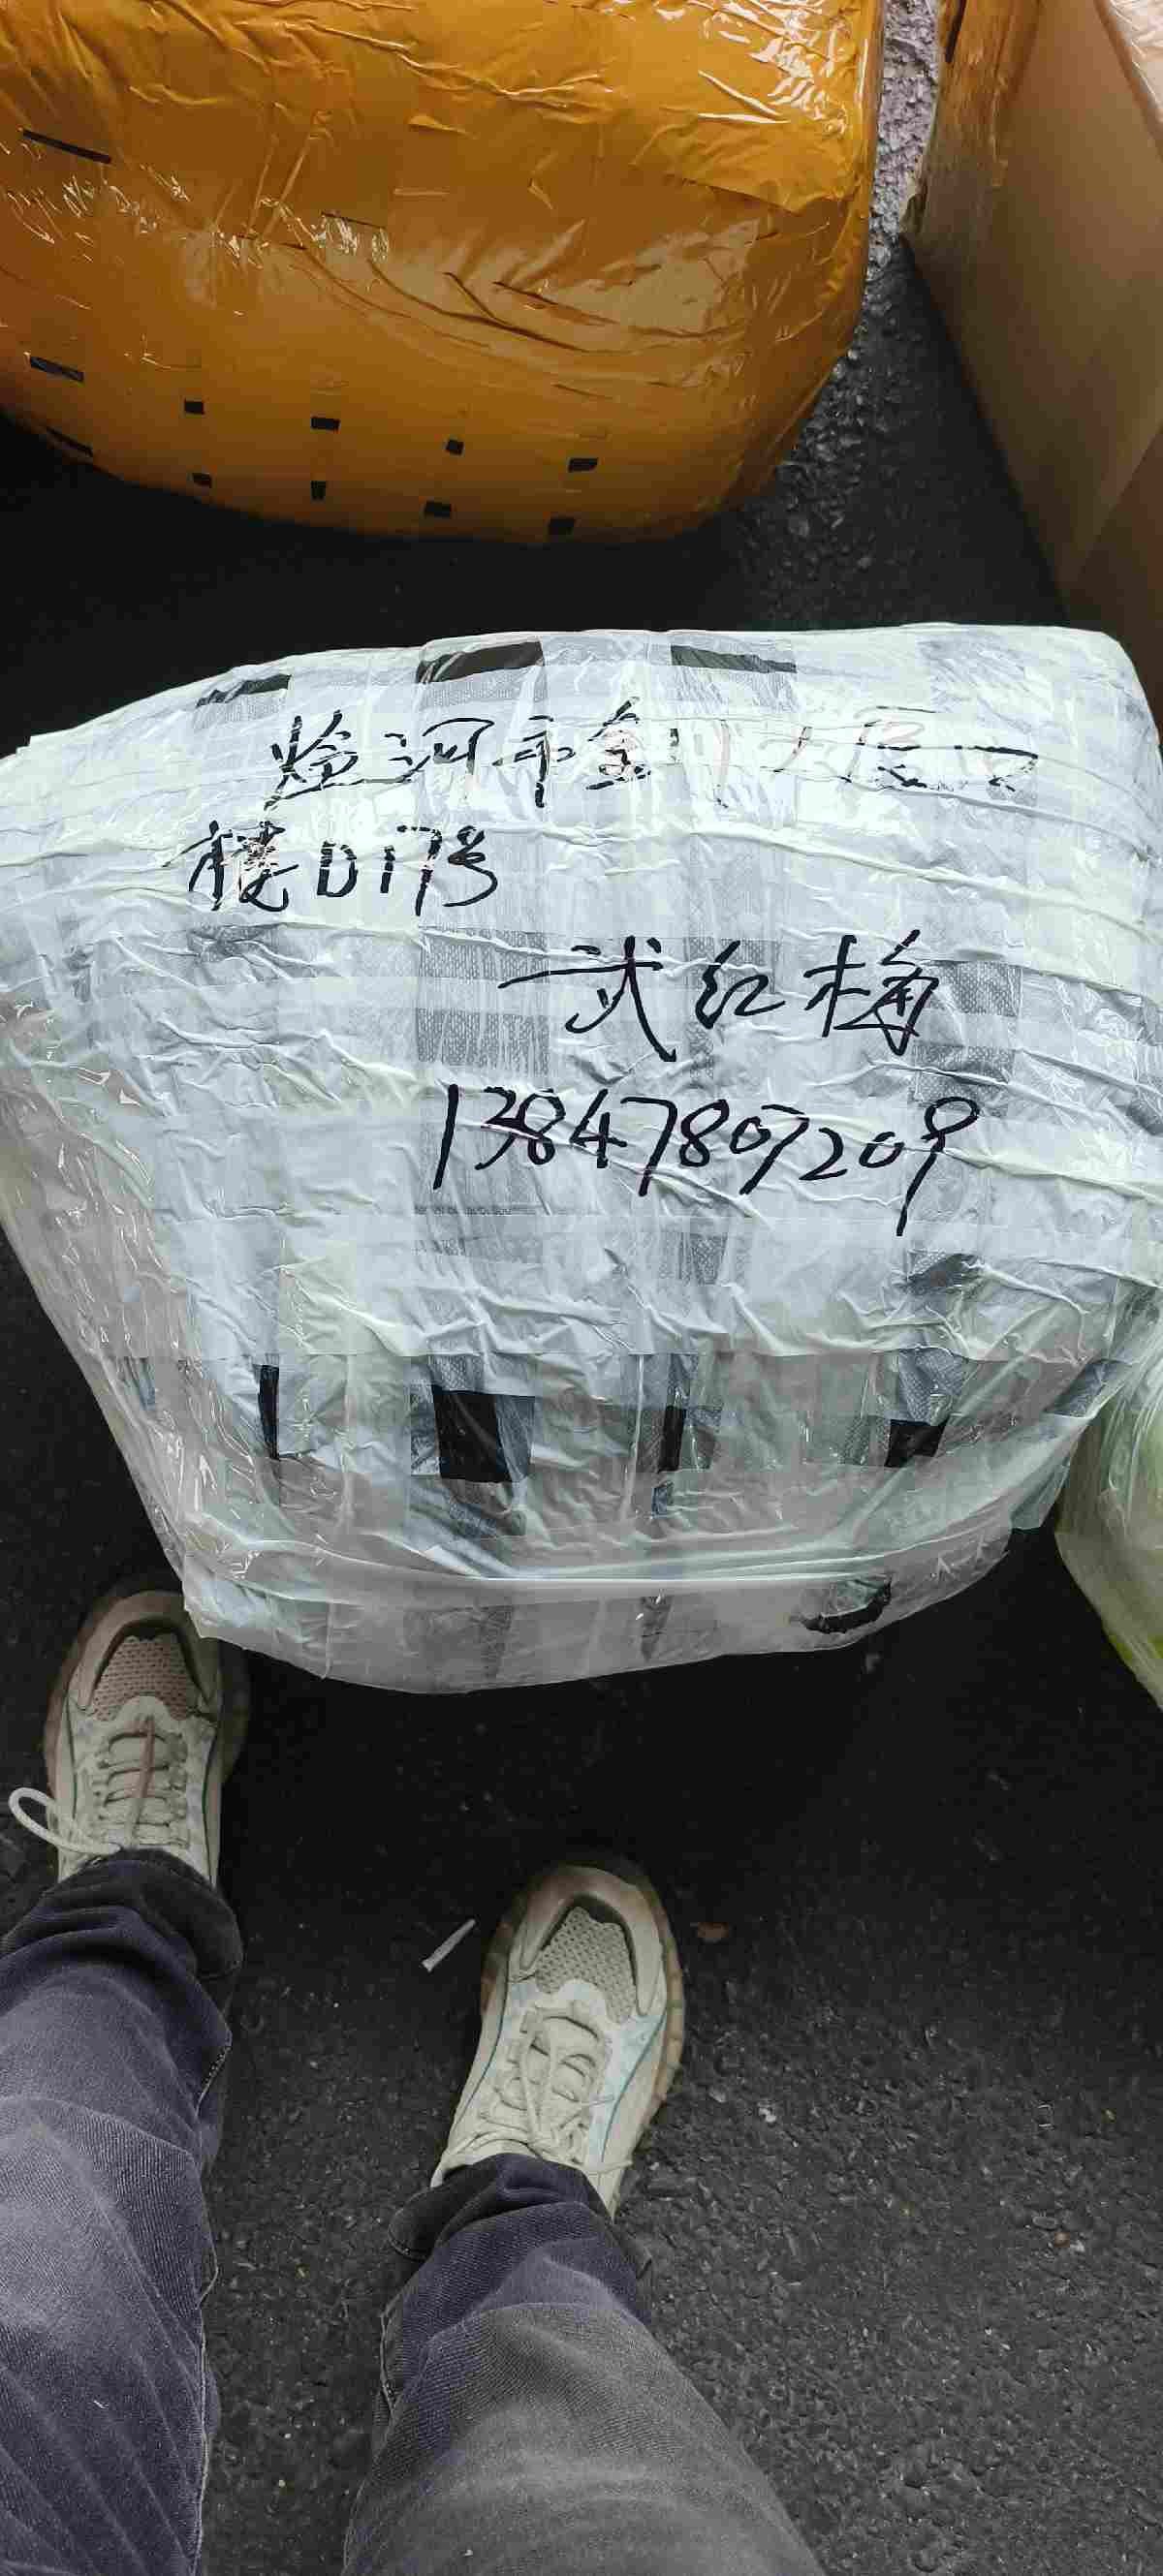 临河市金川大厦二
楼D17号
武红梅
13847807209